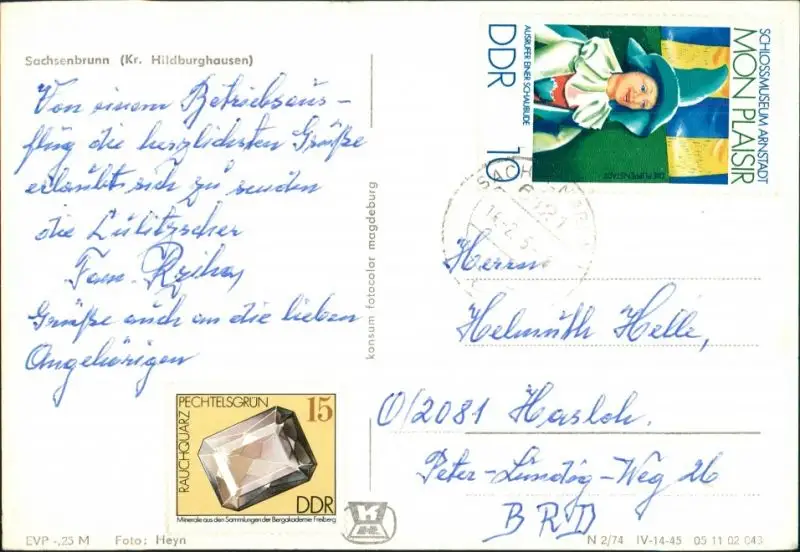 Sachsenbrunn (Kr. Hildburghausen)
Von einem Betriebsaus-
flug die herzlichsten Grüße
erlaubt sich zu senden
die Lulitzscher
Fam.
Grüße auch an die lieben
Angehörigen
PECHTELSGRÜN 15
RAUCHQUARZ
DDR
Minerale aus den Sammlungen der Bergakademie Freiberg
EVP -,25 M Foto: Heyn
konsum fotocolor magdeburg
SCHLOSSMUSEUM ARNSTADT
MON PLAISIR
DIE PUPPENSTADT
AUSRUFER EINER SCHAUBUDE
DDR 10
Herrn
Helmuth Helle,
O/2081 Hasloh.
Peter-Lündig-Weg 26
BRD
K
N 2/74 IV-14-45 05 11 02 043